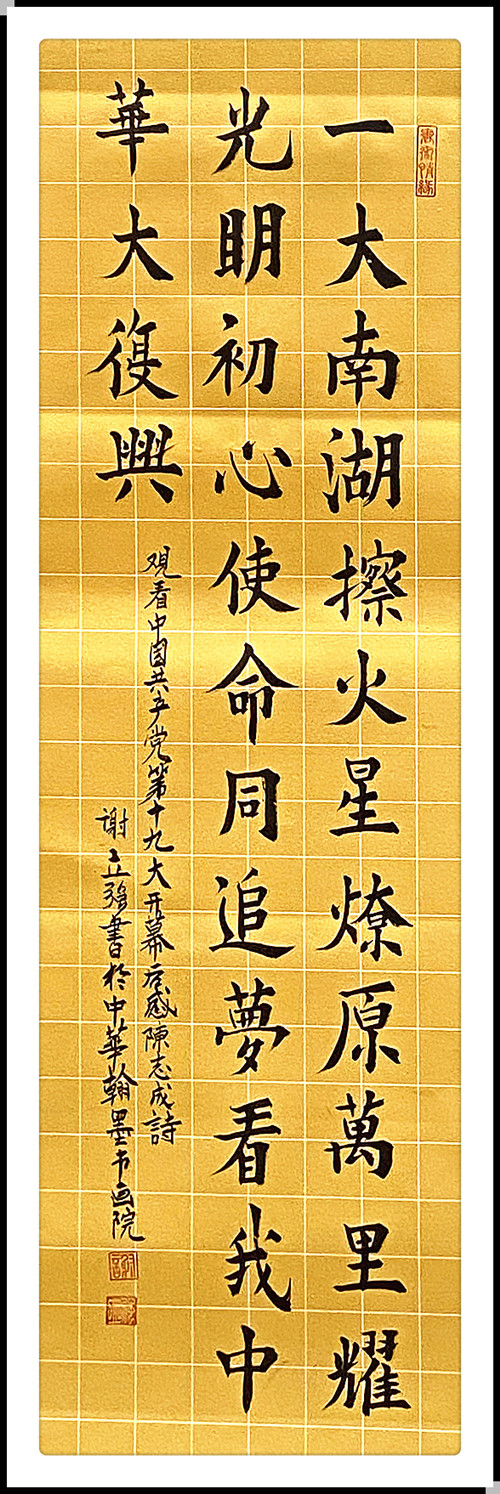 一大南湖擦火星燎原萬里耀
光明初心使命同追夢看我中
華大復興
观看中国共产党第十九大开幕后感陳志成詩
谢立强書於中華翰墨书画院